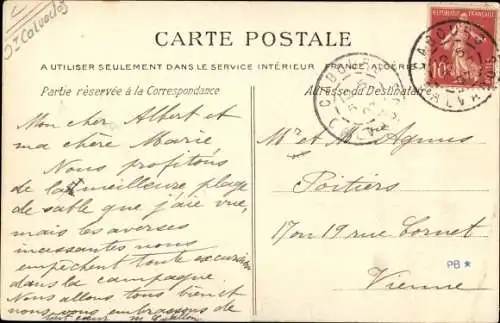 Dt Calvados
CARTE POSTALE
A UTILISER SEULEMENT DANS LE SERVICE INTÉRIEUR FRANCE ALGÉRIE
Partie réservée à la Correspondance
Adresse du Destinataire
RÉPUBLIQUE FRANÇAISE
10
CABOURG
CALVADOS
CABOURG
Mon cher Albert et
ma chère Marie
Nous profitons
de la meilleure plage
de sable que j'aie vue,
mais les averses
incessantes nous
empêchent toute excursion
dans la campagne
Nous allons tous bien et
nous vous embrassons de
tout cœur
Mr et Mme Agnus
Poitiers
17 ou 19 rue Cornet
Vienne
PB *